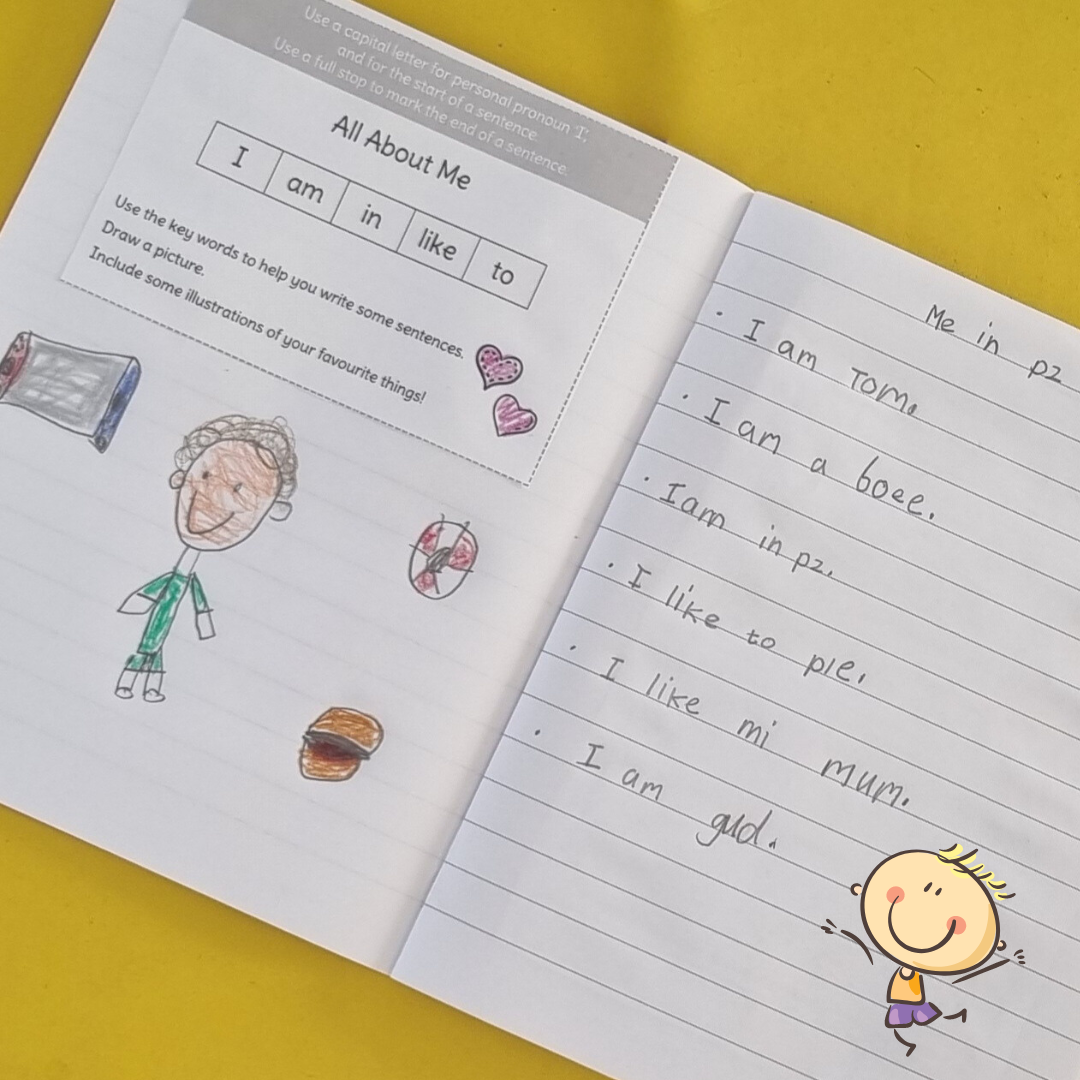 Use a capital letter for personal pronoun 'I',
and for the start of a sentence.
Use a full stop to mark the end of a sentence.
All About Me
I am in like to
Use the key words to help you write some sentences.
Draw a picture.
Include some illustrations of your favourite things!
Me in pz
• I am Tom.
• I am a boee.
• I am in pz.
• I like to ple.
• I like mi mum.
• I am gud.